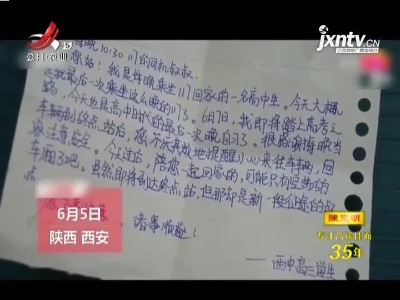 jxntv.CN
晚10:30 117的司机叔叔:
您好! 我是每晚乘坐117回家的一名高中生。今天大概
是我最后一次乘坐这么晚的117了。6月7日,我即将踏上高考之
路,今天也是高中时代的最后一次晚自习了。很感谢每晚当
车辆到终点站后,您不厌其烦地提醒小心来往车辆,回
家注意安全。今天过后,陪您一起回家的,可能只有空荡的
车厢了吧。虽然即将到达终点站,但那却是新一段征途的起
诸事顺遂!
——西中高三学生
6月5日
陕西 西安
35年